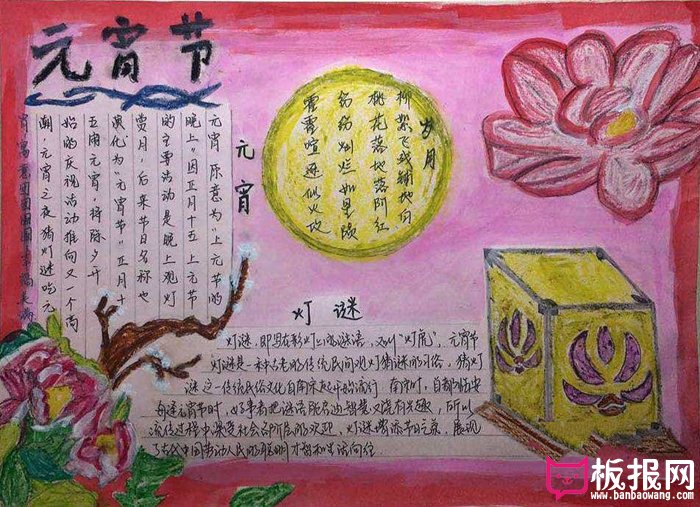 元宵节
元宵
元宵 原意为"上元节的
晚上"因正月十五上元节
的主要活动是晚上观灯
赏月,后来节日名称也
演化为"元宵节"正月十
五闹元宵,将除夕开
始的庆祝活动推向又一个高
潮,元宵之夜猜灯谜吃元
宵寓意团团圆圆
岁月
柳絮飞残铺地白
桃花落地落阶红
纷纷灿烂如星陨
霍霍喧逐似火攻
灯谜
灯谜,即写在彩灯上的谜语,又叫"灯虎"。元宵节
灯谜是一种古老的传统民间观灯猜谜的习俗,猜灯
谜这一传统民俗文化自南宋起开始流行 南宋时,首都临安
每逢元宵节时,好事者把谜语 启迪智慧又饶有兴趣,所以
流传过程中深受社会各阶层的欢迎,灯谜增添节日气氛,展现
了古代中国劳动人民的聪明才智和生活向往
板报网
www.banbaowang.com